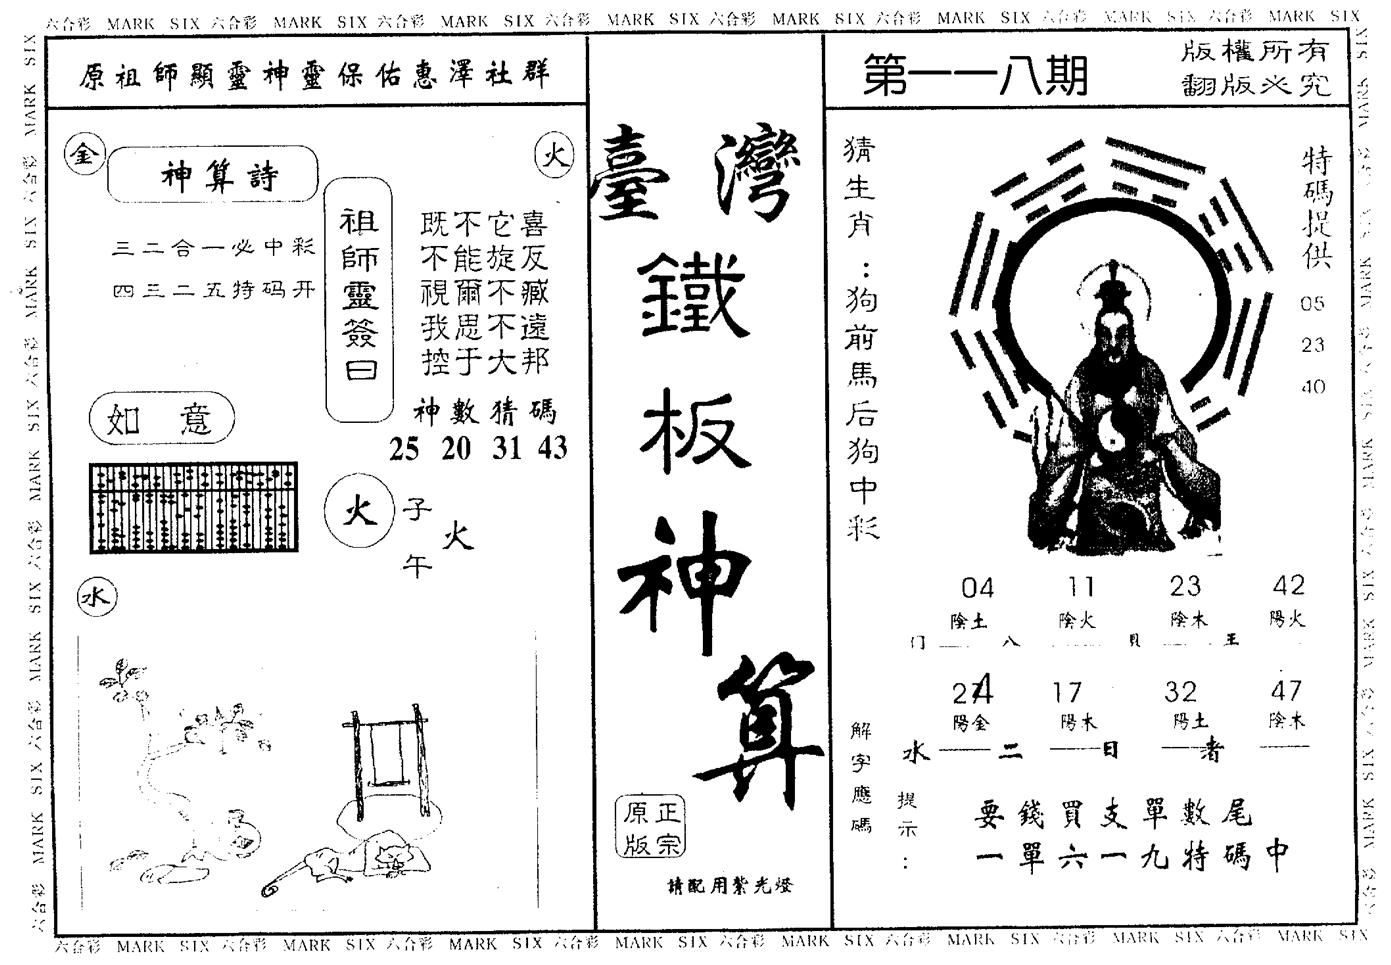 六合彩 MARK SIX 六合彩 MARK SIX 六合彩 MARK SIX 六合彩 MARK SIX 六合彩 MARK SIX 六合彩 MARK SIX 六合彩 MARK SIX 六合彩 MARK SIX
原祖師顯靈神靈保佑惠澤社群
金
火
神算詩
三二合一必中彩
四三二五特码开
祖師靈簽曰
既不它喜
不能旋反
視爾不臧
我思不遠
控于大邦
神數猜碼
25 20 31 43
如意
火
子
火
午
水
臺灣
鐵
板
神
算
正宗
原版
請配用紫光燈
第一一八期
版權所有
翻版必究
猜生肖：狗前馬后狗中彩
特碼提供
05
23
40
04 11 23 42
陰土 陰火 陰木 陽火
门 八 貝 王
27 17 32 47
陽金 陽木 陽土 陰木
水 二 日 者
解字應碼
提示：
要錢買支單數尾
一單六一九特碼中
六合彩 MARK SIX 六合彩 MARK SIX 六合彩 MARK SIX 六合彩 MARK SIX 六合彩 MARK SIX 六合彩 MARK SIX 六合彩 MARK SIX 六合彩 MARK SIX